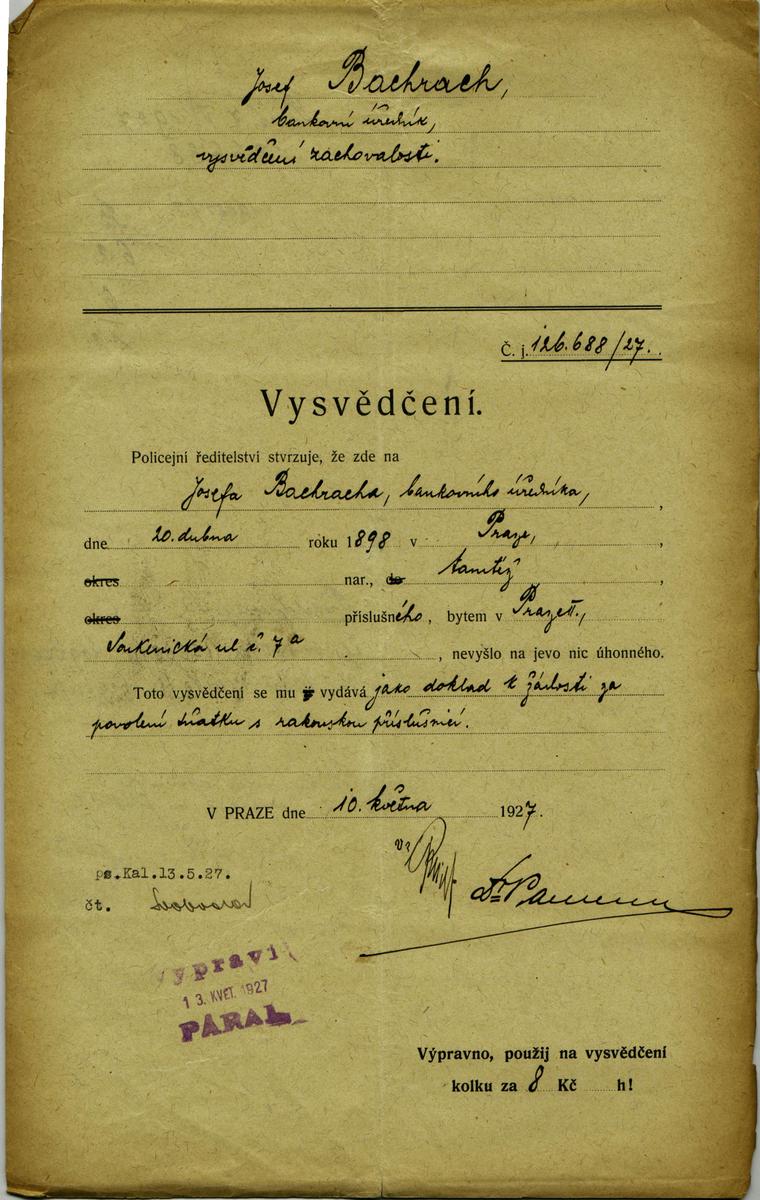 Josef Bachrach,
bankovní úředník,
vysvědčení zachovalosti.
Č. j. 126.688/27.
Vysvědčení.
Policejní ředitelství stvrzuje, že zde na
Josefa Bachracha, bankovního úředníka,
dne 20. dubna roku 1898 v Praze,
okres nar., do tamtéž,
okres příslušného, bytem v Praze II.,
Soukenická ul č. 7a, nevyšlo na jevo nic úhonného.
Toto vysvědčení se mu vydává jako doklad k žádosti za
povolení sňatku s rakouskou příslušnicí.
V PRAZE dne 10. května 1927.
ps.Kal.13.5.27.
čt. Svoboda
Vypravil
13. KVĚT. 1927
PARAL
Výpravno, použij na vysvědčení
kolku za 8 Kč h!